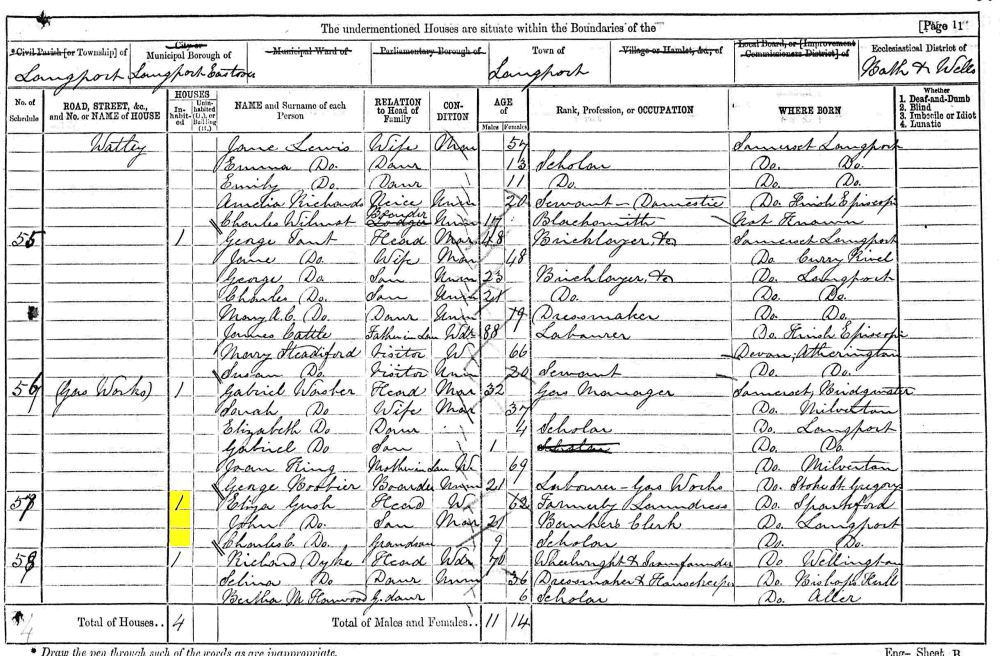 The undermentioned Houses are situate within the Boundaries of the [Page 11
Civil Parish [or Township] of City or Municipal Borough of Municipal Ward of Parliamentary Borough of Town of Village or Hamlet, &c., of Local Board, or [Improvement Commissioners District] of Ecclesiastical District of
Langport Langport Eastover Langport Bath & Wells
No. of Schedule ROAD, STREET, &c., and No. or NAME of HOUSE HOUSES Inhabited Uninhabited (U.), or Building (B.) NAME and Surname of each Person RELATION to Head of Family CONDITION AGE of Males Females Rank, Profession, or OCCUPATION WHERE BORN Whether 1. Deaf-and-Dumb 2. Blind 3. Imbecile or Idiot 4. Lunatic
Jane Lewis Wife 57 Somerset Langport
Emma Do. Daur 13 Scholar Do. Do.
Emily Do. Daur 11 Do. Do. Do.
Amelia Richards Neice Unm 20 Servant - Domestic Do. Huish Episcopi
Charles Wilmot Boarder Lodger Unm 17 Blacksmith Not Known
55 1 George Tant Head Mar 48 Bricklayer, &c Somerset Langport
Jane Do. Wife Mar 48 Do. Curry Rivel
George Do. Son Unm 23 Bricklayer, &c Do. Langport
Charles Do. Son Unm 21 Do. Do. Do.
Mary A. C. Do. Daur Unm 19 Dressmaker Do. Do.
James Cattle Father in Law Wdr 88 Labourer Do. Huish Episcopi
Mary Steadiford Visitor W 66 Devon, Atherington
Susan Do. Visitor Unm 20 Servant Do. Do.
56 (Gas Works) 1 Gabriel Mar 32 Gas Manager Somerset, Bridgwater
Sarah Do Wife Mar 37 Do. Milverton
Elizabeth Do Daur 4 Scholar Do. Langport
Gabriel Do Son 1 Scholar Do. Do.
Joan King Mother in Law Wi 69 Do. Milverton
George Boarder Unm 21 Labourer - Gas Works Do. Stoke St. Gregory
57 1 Eliza Gush Head W 62 Formerly Laundress Do. Sparkford
John Do. Son Mar 21 Bankers Clerk Do. Langport
Charles C. Do. Grandson 9 Scholar Do. Do.
58 1 Richard Dyke Head Wdr 70 Wheelwright & Ironfounder Do. Wellington
Selina Do Daur Unm 36 Dressmaker & Housekeeper Do. Bishops Hull
Bertha M G. daur 6 Scholar Do. Aller
Total of Houses.. 4 Total of Males and Females.. 11 14
* Draw the pen through such of the words as are inappropriate. Eng- Sheet B.